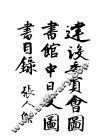 建設委員會圖
書館中日文圖
書目錄 張人傑